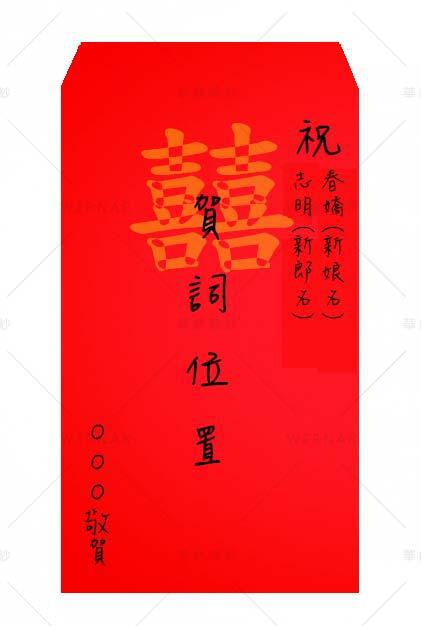 祝
春嬌（新娘名）
志明（新郎名）
囍
賀詞位置
○○○敬賀
WERNAR
WERNAR